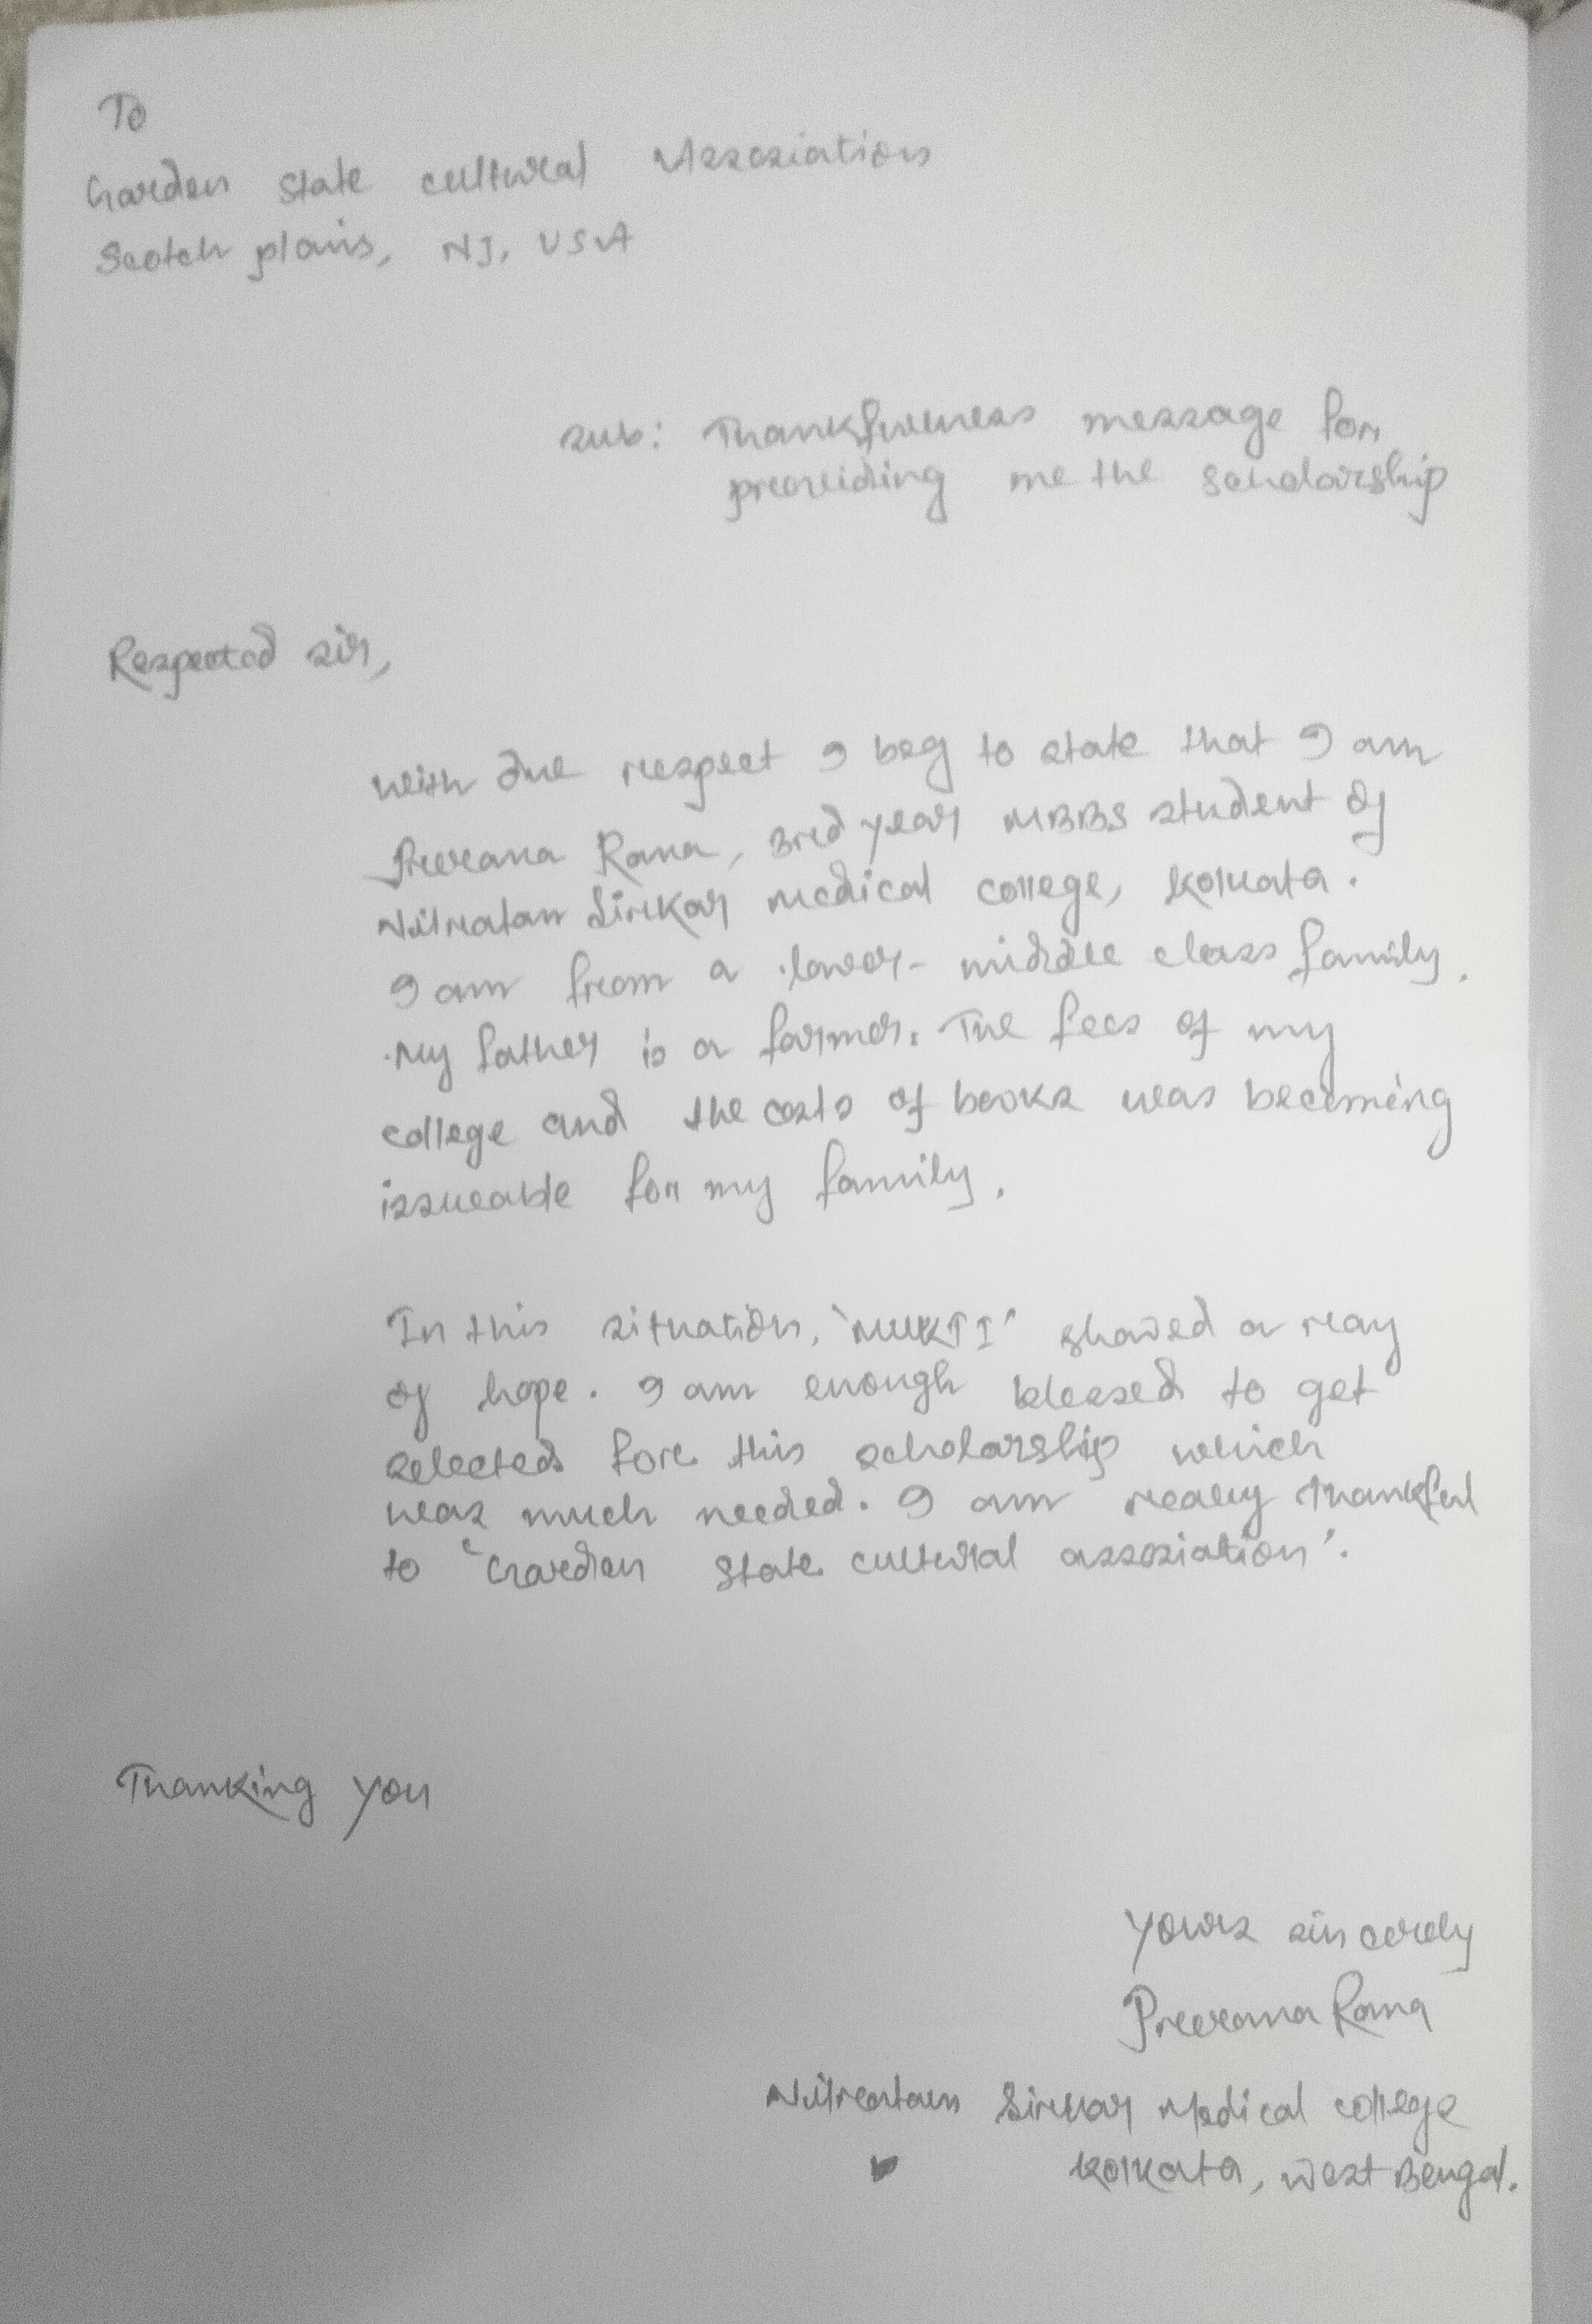 To
Garden State cultural Association
Scotch plains, NJ, USA
Sub: Thankfulness message for
providing me the scholarship
Respected sir,
With due respect I beg to state that I am
Prerana Rana, 3rd year MBBS student of
Nilratan Sirkar Medical college, Kolkata.
I am from a lower-middle class family.
My father is a farmer. The fees of my
college and the costs of books was becoming
issueable for my family.
In this situation, 'MUKTI' showed a ray
of hope. I am enough blessed to get
selected for this scholarship which
was much needed. I am really thankful
to 'Garden State cultural association'.
Thanking you
Yours sincerely
Prerana Rana
Nilratan Sirkar Medical college
Kolkata, West Bengal.